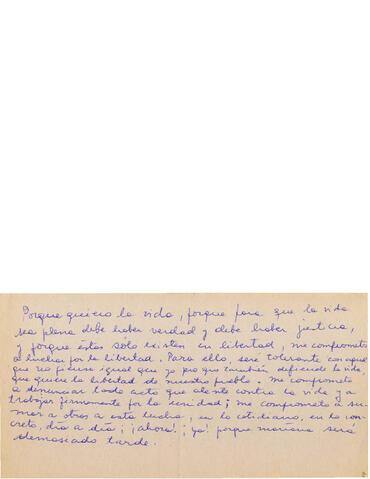 Porque quiero la vida, porque para que la vida
sea plena debe haber verdad y debe haber justicia,
y porque éstas sólo existen en libertad, me comprometo
a luchar por la libertad. Para ello, seré tolerante con aquel
que no piense igual que yo pero que también defiende la vida,
que quiere la libertad de nuestro pueblo. Me comprometo
a denunciar todo acto que atente contra la vida y a
trabajar firmemente por la unidad; me comprometo a su-
mar a otros a esta lucha, en lo cotidiano, en lo con-
creto, día a día; ¡ahora!; ¡ya! porque mañana será
demasiado tarde.